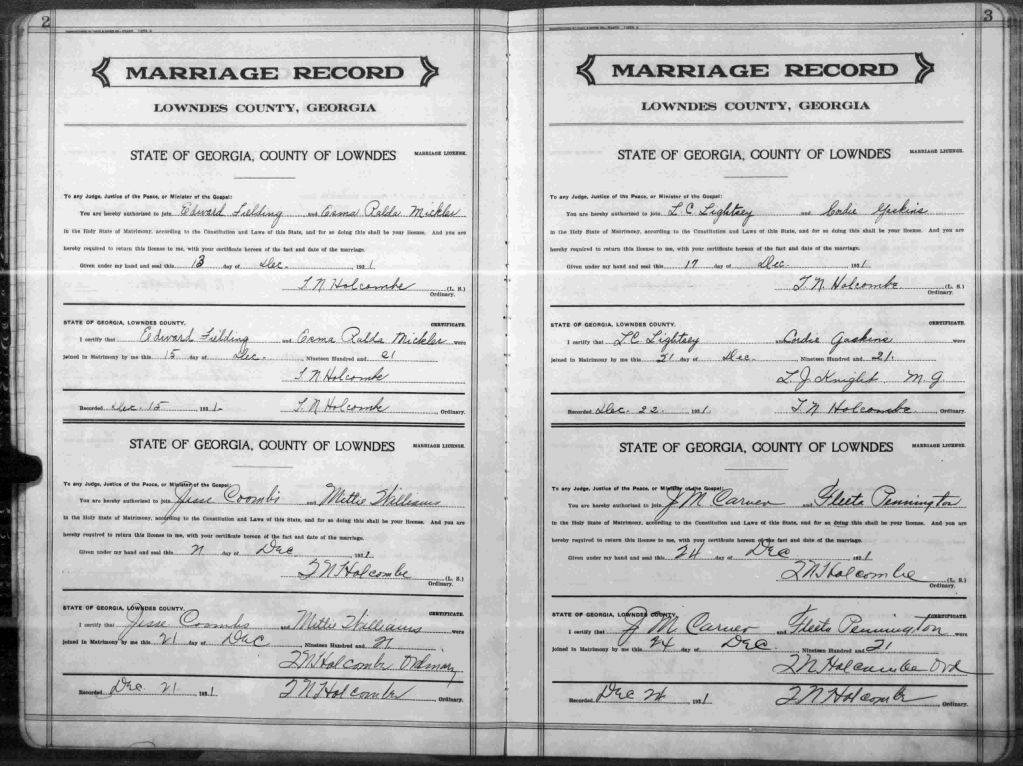 2
MARRIAGE RECORD
LOWNDES COUNTY, GEORGIA
STATE OF GEORGIA, COUNTY OF LOWNDES MARRIAGE LICENSE.
To any Judge, Justice of the Peace, or Minister of the Gospel:
You are hereby authorized to join Edward Fielding and Esma Ralda Mickler
in the Holy State of Matrimony, according to the Constitution and Laws of this State, and for so doing this shall be your license. And you are
hereby required to return this license to me, with your certificate hereon of the fact and date of the marriage.
Given under my hand and seal this 13 day of Dec. 1921
T. N. Holcombe (L. S.)
Ordinary.
STATE OF GEORGIA, LOWNDES COUNTY. CERTIFICATE.
I certify that Edward Fielding and Esma Ralda Mickler were
joined in Matrimony by me this 15 day of Dec. Nineteen Hundred and 21
T. N. Holcombe
Recorded Dec. 15 1921. T. N. Holcombe, Ordinary.
STATE OF GEORGIA, COUNTY OF LOWNDES MARRIAGE LICENSE.
To any Judge, Justice of the Peace, or Minister of the Gospel:
You are hereby authorized to join Jesse Coombs and Mittie Williams
in the Holy State of Matrimony, according to the Constitution and Laws of this State, and for so doing this shall be your license. And you are
hereby required to return this license to me, with your certificate hereon of the fact and date of the marriage.
Given under my hand and seal this 21 day of Dec 1921
T N Holcombe (L. S.)
Ordinary.
STATE OF GEORGIA, LOWNDES COUNTY. CERTIFICATE.
I certify that Jesse Coombs and Mittie Williams were
joined in Matrimony by me this 21 day of Dec Nineteen Hundred and 21
T N Holcombe Ordinary
Recorded Dec 21 1921 T N Holcombe, Ordinary.
3
MARRIAGE RECORD
LOWNDES COUNTY, GEORGIA
STATE OF GEORGIA, COUNTY OF LOWNDES MARRIAGE LICENSE.
To any Judge, Justice of the Peace, or Minister of the Gospel:
You are hereby authorized to join L. C. Lightsey and Cordie Gaskins
in the Holy State of Matrimony, according to the Constitution and Laws of this State, and for so doing this shall be your license. And you are
hereby required to return this license to me, with your certificate hereon of the fact and date of the marriage.
Given under my hand and seal this 17 day of Dec. 1921.
T. N. Holcombe (L. S.)
Ordinary.
STATE OF GEORGIA, LOWNDES COUNTY. CERTIFICATE.
I certify that L. C. Lightsey and Cordie Gaskins were
joined in Matrimony by me this 21 day of Dec. Nineteen Hundred and 21.
L. J. Knight M. G.
Recorded Dec. 22. 1921. T. N. Holcombe, Ordinary.
STATE OF GEORGIA, COUNTY OF LOWNDES MARRIAGE LICENSE.
To any Judge, Justice of the Peace, or Minister of the Gospel:
You are hereby authorized to join J M Carver and Fleeta Pennington
in the Holy State of Matrimony, according to the Constitution and Laws of this State, and for so doing this shall be your license. And you are
hereby required to return this license to me, with your certificate hereon of the fact and date of the marriage.
Given under my hand and seal this 24 day of Dec 1921
T N Holcombe (L. S.)
Ordinary.
STATE OF GEORGIA, LOWNDES COUNTY. CERTIFICATE.
I certify that J M Carver and Fleeta Pennington were
joined in Matrimony by me this 24 day of Dec Nineteen Hundred and 21
T N Holcombe Ord
Recorded Dec 24 1921 T N Holcombe, Ordinary.